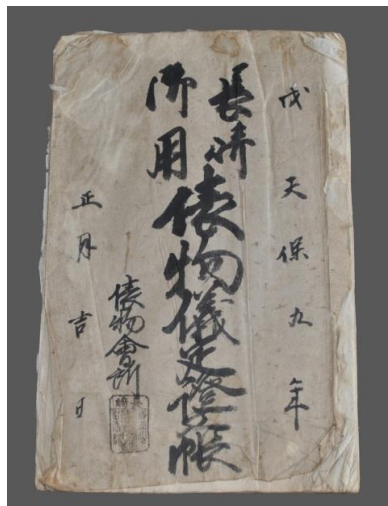 戊天保九年
長崎
御用
俵物儀定證帳
正月吉日
俵物會所